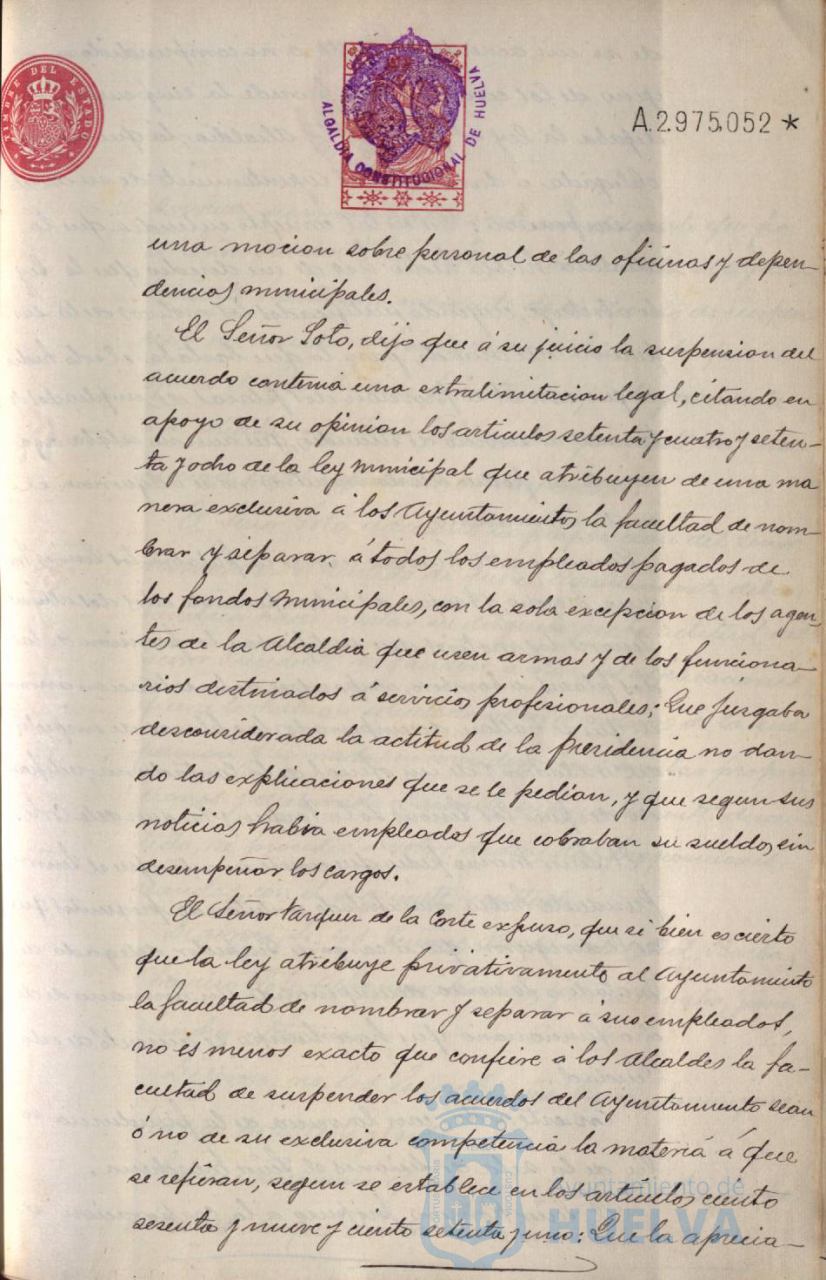 TIMBRE DEL ESTADO
ALCALDIA CONSTITUCIONAL DE HUELVA
A.2.975.052 *
una mocion sobre personal de las oficinas y depen-
dencias municipales.
El Señor Soto, dijo que á su juicio la suspension del
acuerdo contenia una extralimitacion legal, citando en
apoyo de su opinion los articulos setenta y cuatro y seten-
ta y ocho de la ley municipal que atribuyen de una ma
nera exclusiva á los Ayuntamientos la facultad de nom-
brar y separar á todos los empleados pagados de
los fondos municipales, con la sola excepcion de los agen-
tes de la Alcaldia que usen armas y de los funciona-
rios destinados á servicios profesionales; Que juzgaba
desconsiderada la actitud de la presidencia no dan-
do las explicaciones que se le pedian, y que segun sus
noticias habia empleados que cobraban su sueldo, sin
desempeñar los cargos.
El Señor de la Corte expuso, que si bien es cierto
que la ley atribuye privativamente al Ayuntamiento
la facultad de nombrar y separar á sus empleados,
no es menos exacto que confiere á los Alcaldes la fa-
cultad de suspender los acuerdos del Ayuntamiento sean
ó no de su exclusiva competencia la materia á que
se refieran, segun se establece en los articulos ciento
sesenta y nueve y ciento setenta y uno: Que la aprecia-
Ayuntamiento de
HUELVA